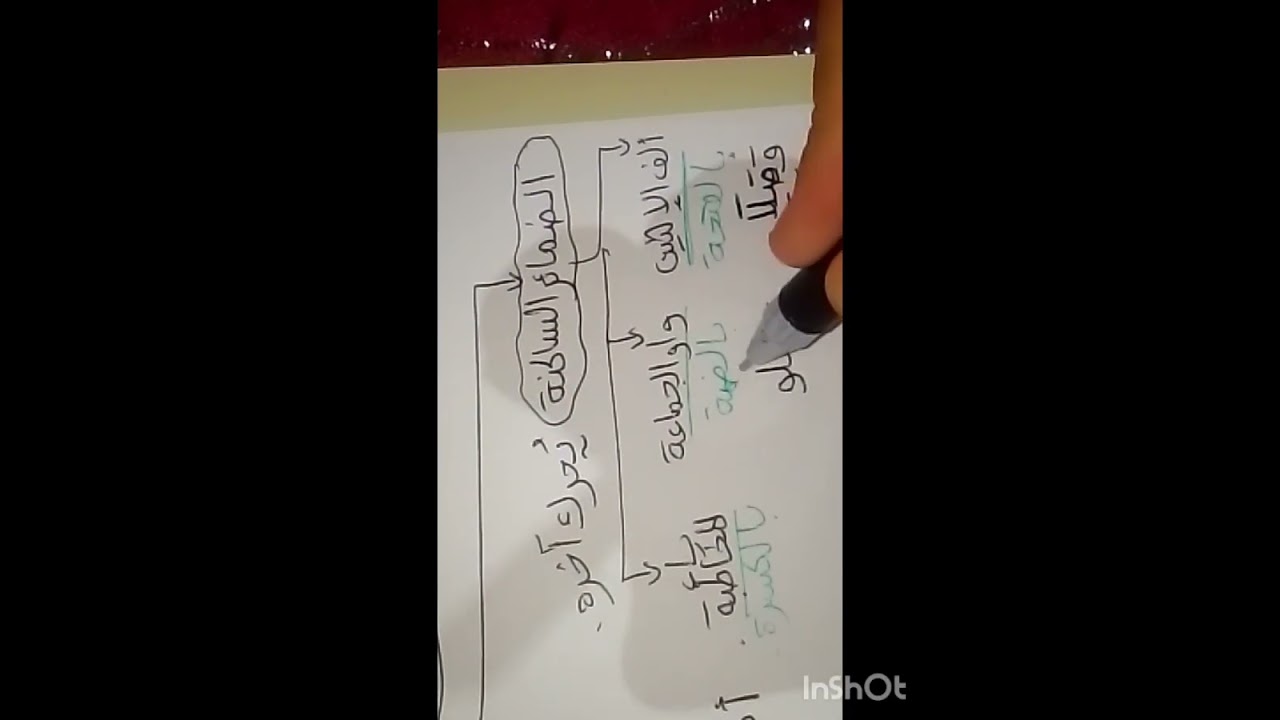 الضمائر الساكنة
يُحرك آخره.
ألف الاثنين
بالفتحة
وَصَلَا
واو الجماعة
بالضمة
المخاطبة
بالكسرة
InShOt